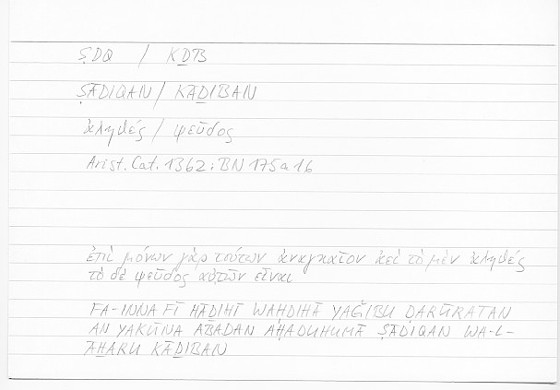 ṢDQ / KḎB
ṢĀDIQAN / KĀḎIBAN
ἀληθές / ψεῦδος
Arist. Cat. 13b2; BN 175a16
ἐπὶ μόνων γὰρ τούτων ἀναγκαῖον ἀεὶ τὸ μὲν ἀληθές
τὸ δὲ ψεῦδος αὐτῶν εἶναι
FA-INNA FĪ HĀḎIHĪ WAḤDIHĀ YAĞIBU ḌARŪRATAN
AN YAKŪNA ABADAN AḤADUHUMĀ ṢĀDIQAN WA-L-
ĀḪARU KĀḎIBAN